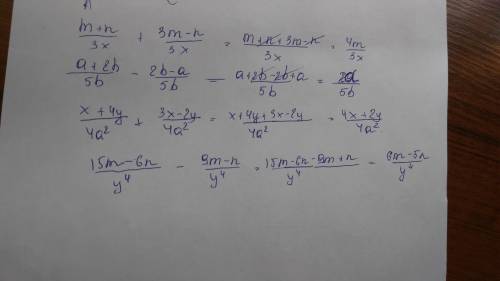 (m+n)/3x + (3m-n)/3x = (m+n+3m-n)/3x = 4m/3x
(a+2b)/5b - (2b-a)/5b = (a+2b-2b+a)/5b = 2a/5b
(x+4y)/4a² + (3x-2y)/4a² = (x+4y+3x-2y)/4a² = (4x+2y)/4a²
(15m-6n)/y⁴ - (9m-n)/y⁴ = (15m-6n-9m+n)/y⁴ = (6m-5n)/y⁴